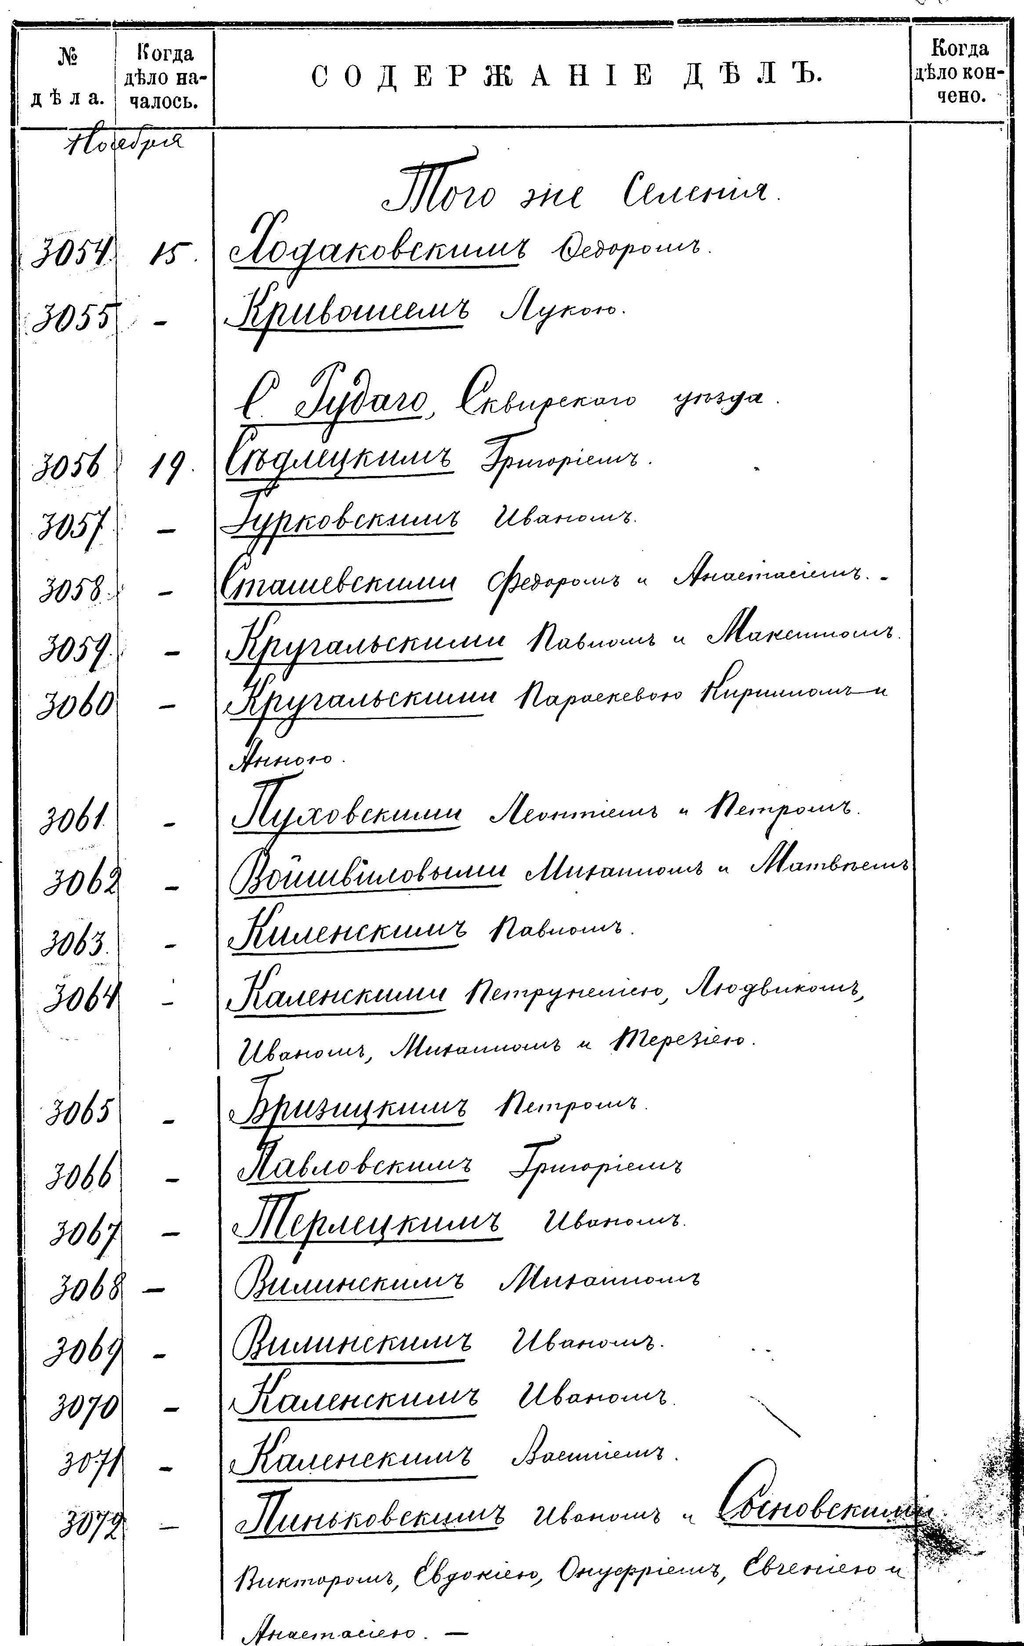 № дѣла. Когда дѣло началось. СОДЕРЖАНІЕ ДѢЛЪ. Когда дѣло кончено.
Ноября
Того же Селенія.
3054 15. Ходаковскимъ Ѳедоромъ.
3055 - Кривошеемъ Лукою.
С. Рудаго, Сквирскаго уѣзда.
3056 19. Сѣдлецкимъ Григоріемъ.
3057 - Гурковскимъ Иваномъ.
3058 - Сташевскими Федоромъ и Анастасіемъ. -
3059 - Кругальскими Павломъ и Максимомъ.
3060 - Кругальскими Параскевою Кириломъ и
Анною.
3061 - Пуховскими Леонтіемъ и Петромъ.
3062 - Войшвиловыми Михаиломъ и Матвѣемъ
3063. - Киленскимъ Павломъ.
3064 - Каленскими Петрунелiею, Людвикомъ,
Иваномъ, Михаиломъ и Терезіею.
3065 - Бризицкимъ Петромъ.
3066 - Павловскимъ Григоріемъ
3067 - Терлецкимъ Иваномъ.
3068 - Вилинскимъ Михаиломъ
3069 - Вилинскимъ Иваномъ.
3070 - Каленскимъ Иваномъ.
3071 - Каленскимъ Василіемъ.
3072 - Линьковскимъ Иваномъ и Сосновскими
Викторомъ, Евдокіею, Онуфріемъ, Евгеніею и
Анастасіею. -